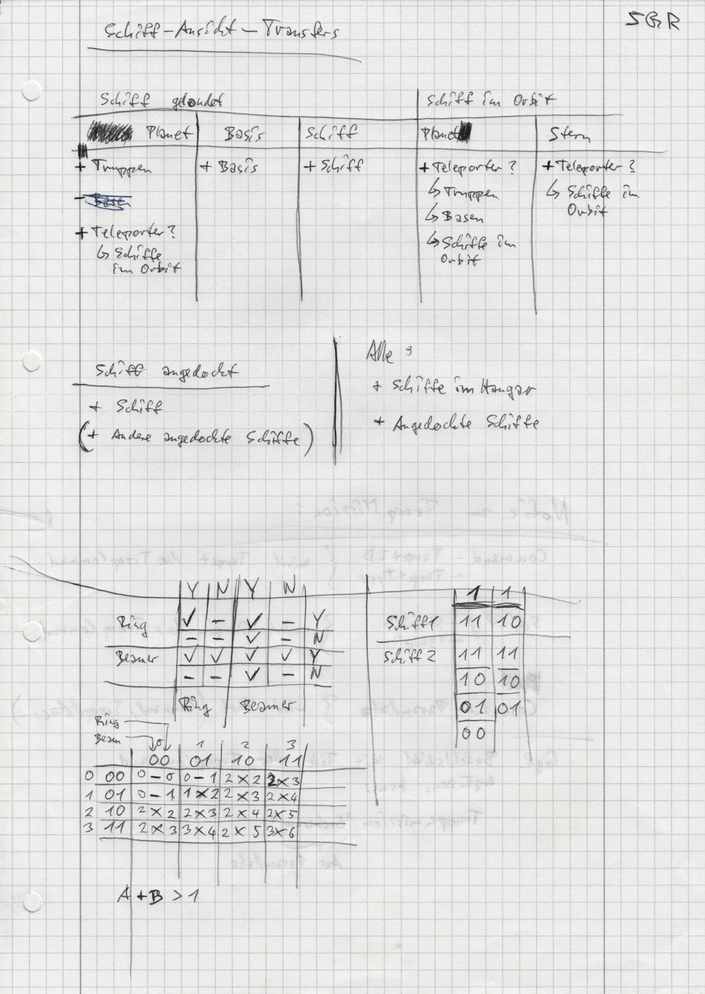 SGR
Schiff-Ansicht-Transfers
Schiff gelandet
Schiff im Orbit
Planet Basis Schiff Planet Stern
+ Truppen + Basis + Schiff + Teleporter? + Teleporter?
↳ Truppen ↳ Schiffe im
- Basen ↳ Basen Orbit
+ Teleporter? ↳ Schiffe im
↳ Schiffe Orbit
im Orbit
Schiff angedockt
+ Schiff
(+ Andere angedockte Schiffe)
Alle:
+ Schiffe im Hangar
+ Angedockte Schiffe
Y N Y N
Ring ✓ - ✓ - Y
- - ✓ - N
Beamer ✓ ✓ ✓ ✓ Y
- - ✓ - N
Ring Beamer
1 1
Schiff 1 11 10
Schiff 2 11 11
10 10
01 01
00
Ring
Beam
0 1 2 3
00 01 10 11
0 00 0-0 0-1 2×2 2×3
1 01 0-1 1×2 2×3 2×4
2 10 2×2 2×3 2×4 2×5
3 11 2×3 3×4 2×5 3×6
A+B>1